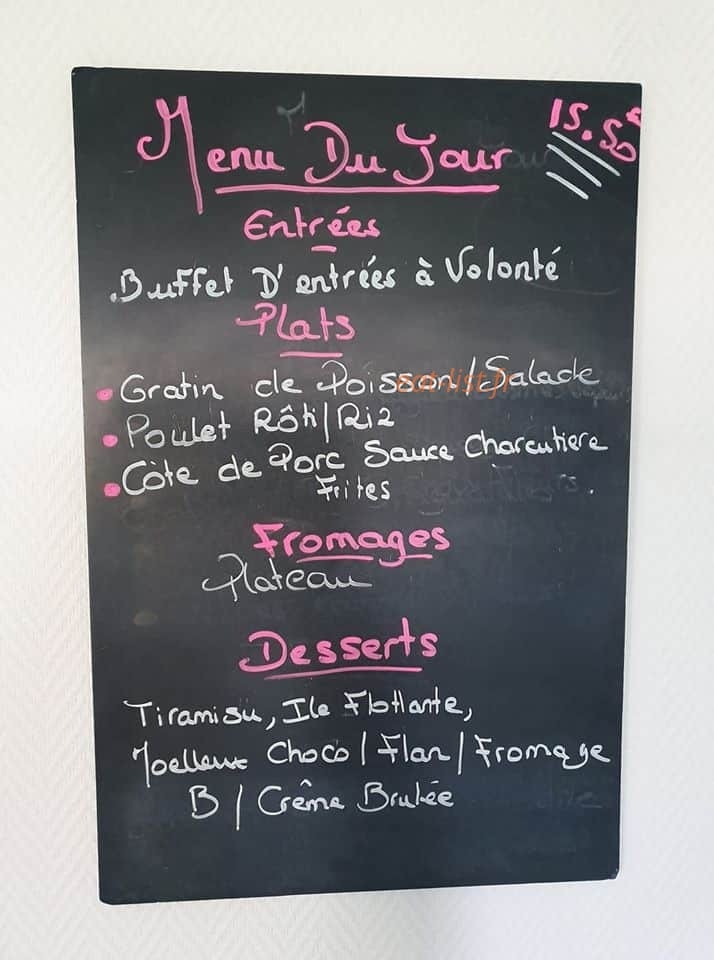 Menu Du Jour
15.50€
Entrées
.Buffet D'entrées à Volonté
Plats
• Gratin de Poisson/Salade
• Poulet Rôti/Riz
• Côte de Porc Sauce Charcutiere
Frites
Fromages
Plateau
Desserts
Tiramisu, Ile Flottante,
Moelleux Choco/Flan/Fromage
B/Crême Brulée